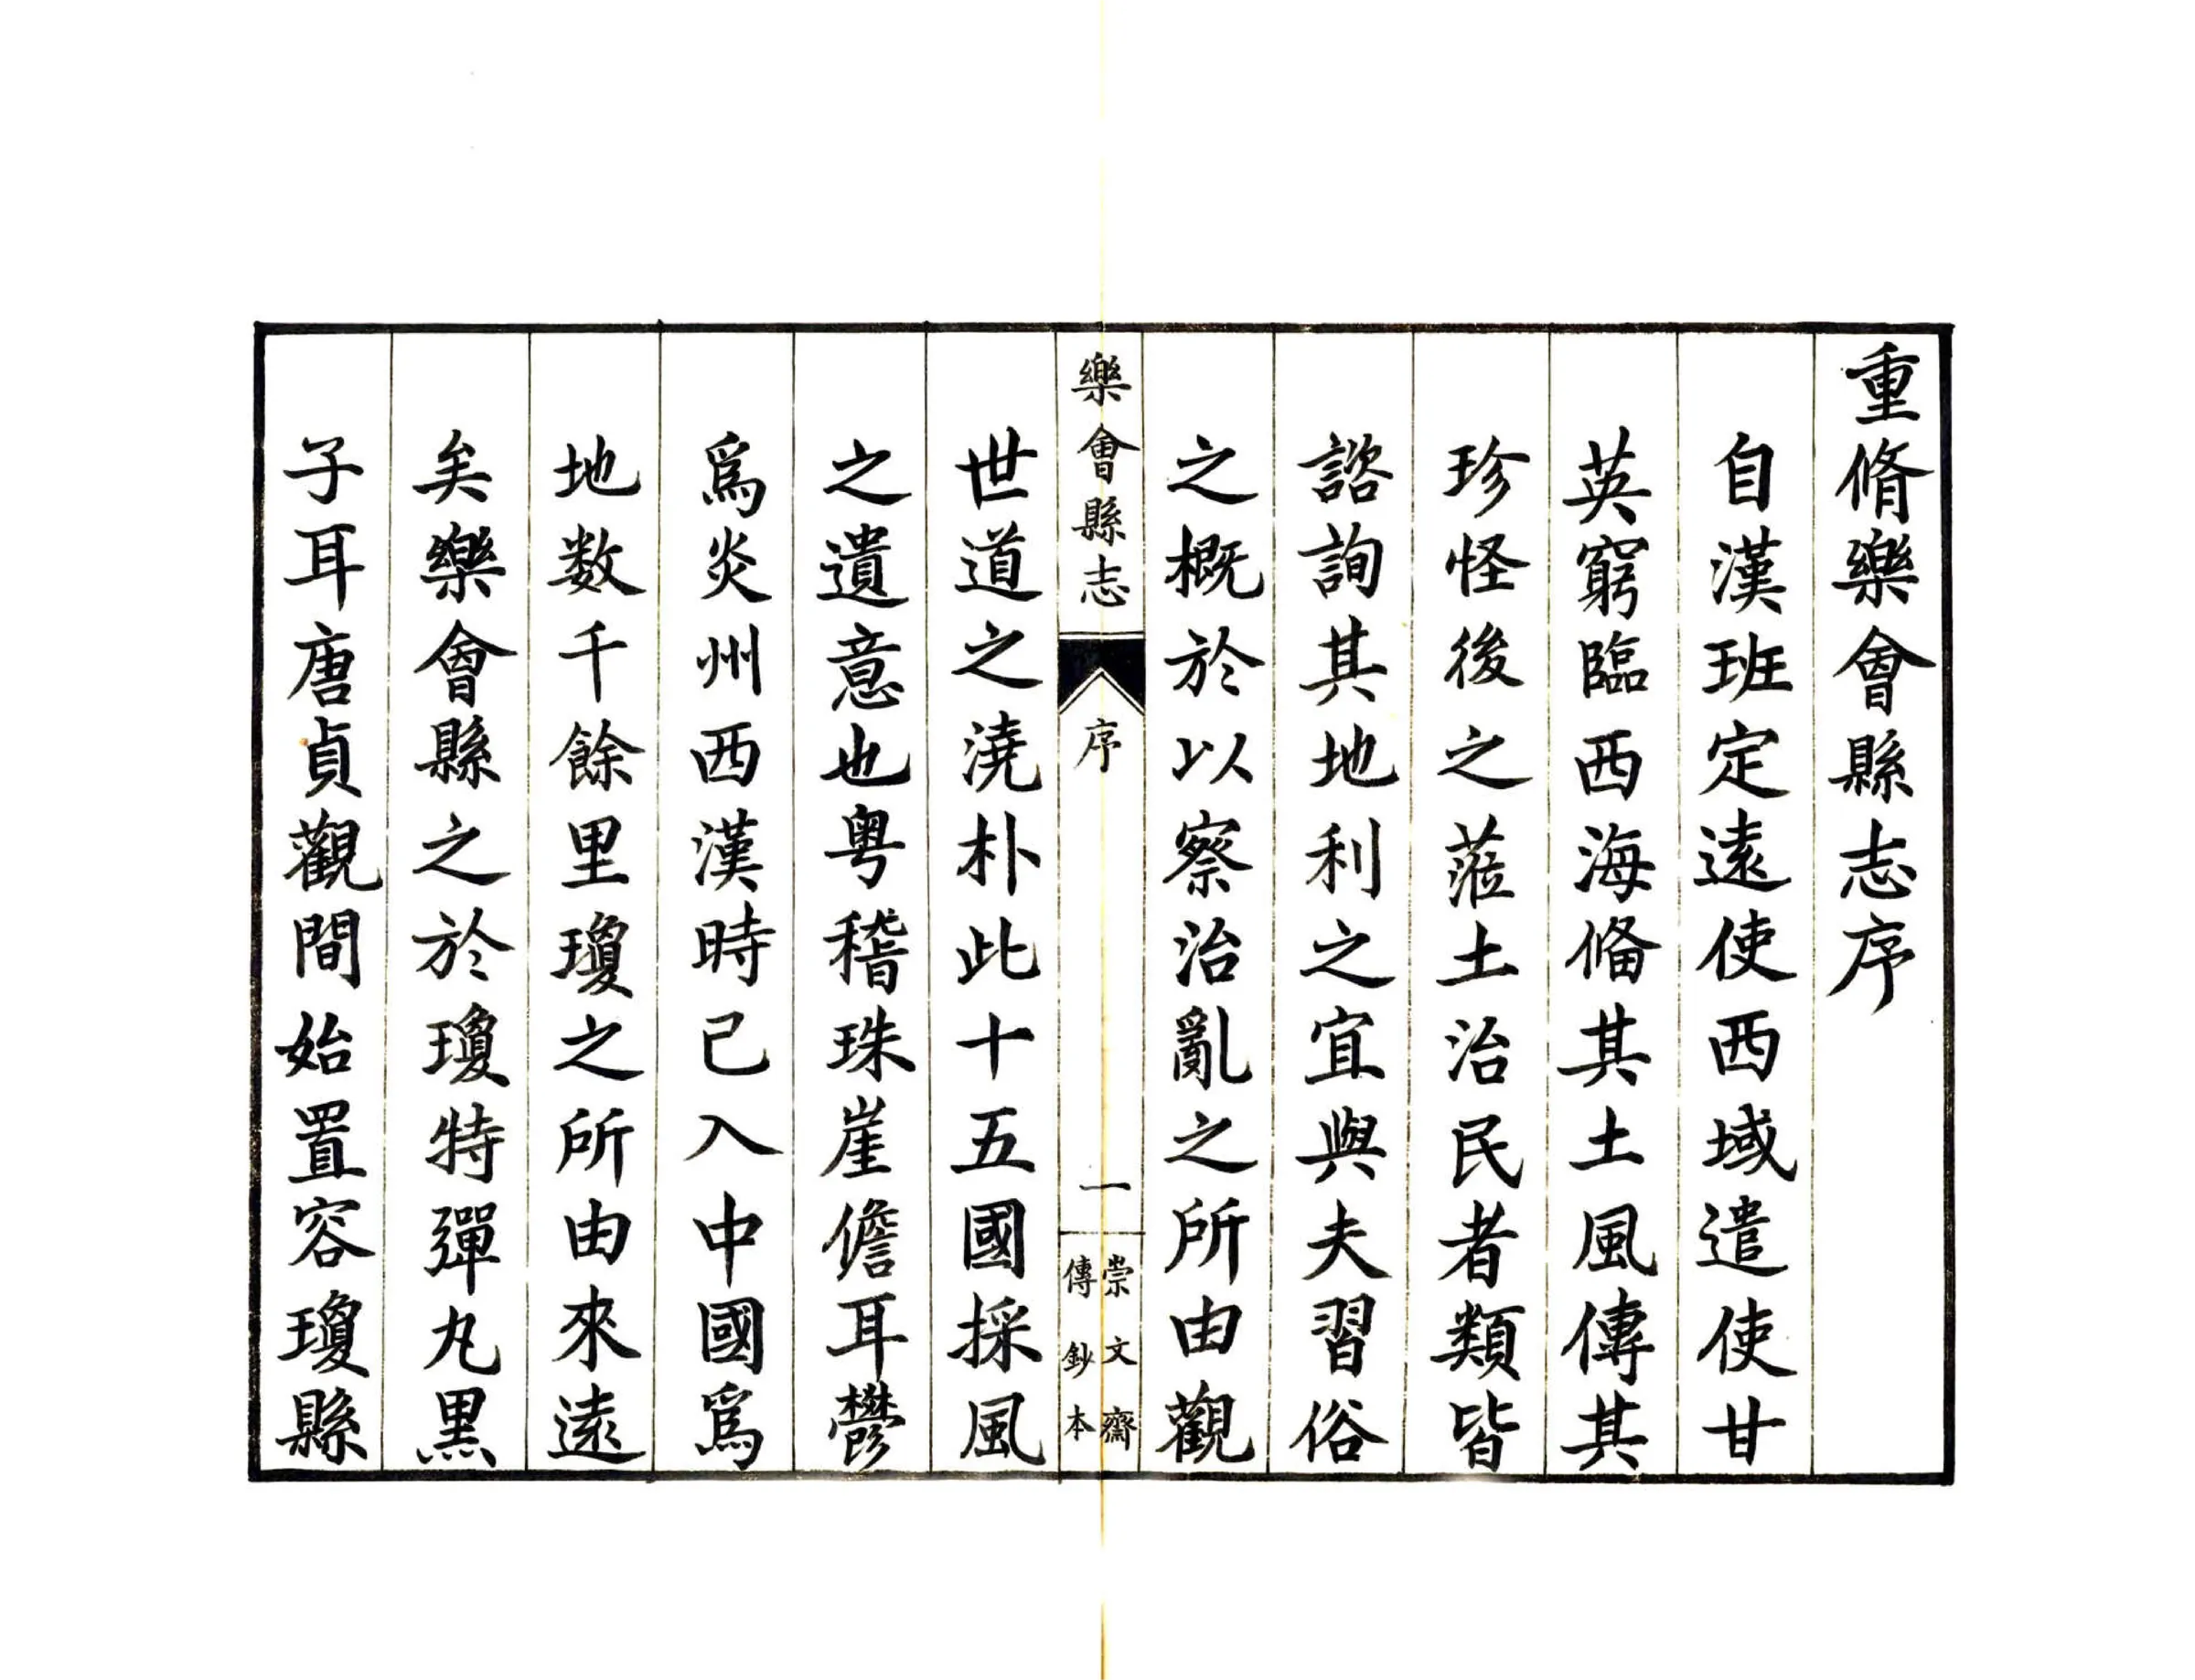 重脩樂會縣志序
自漢班定遠使西域遣使甘
英窮臨西海俻其土風傳其
珍怪後之蒞土治民者類皆
諮詢其地利之宜與夫習俗
之概於以察治亂之所由觀
樂會縣志
序
一
崇文齋
傳鈔本
世道之澆朴此十五國採風
之遺意也粤稽珠崖儋耳鬱
爲炎州西漢時已入中國爲
地数千餘里瓊之所由來遠
矣樂會縣之於瓊特彈丸黑
子耳唐貞觀間始置容瓊縣